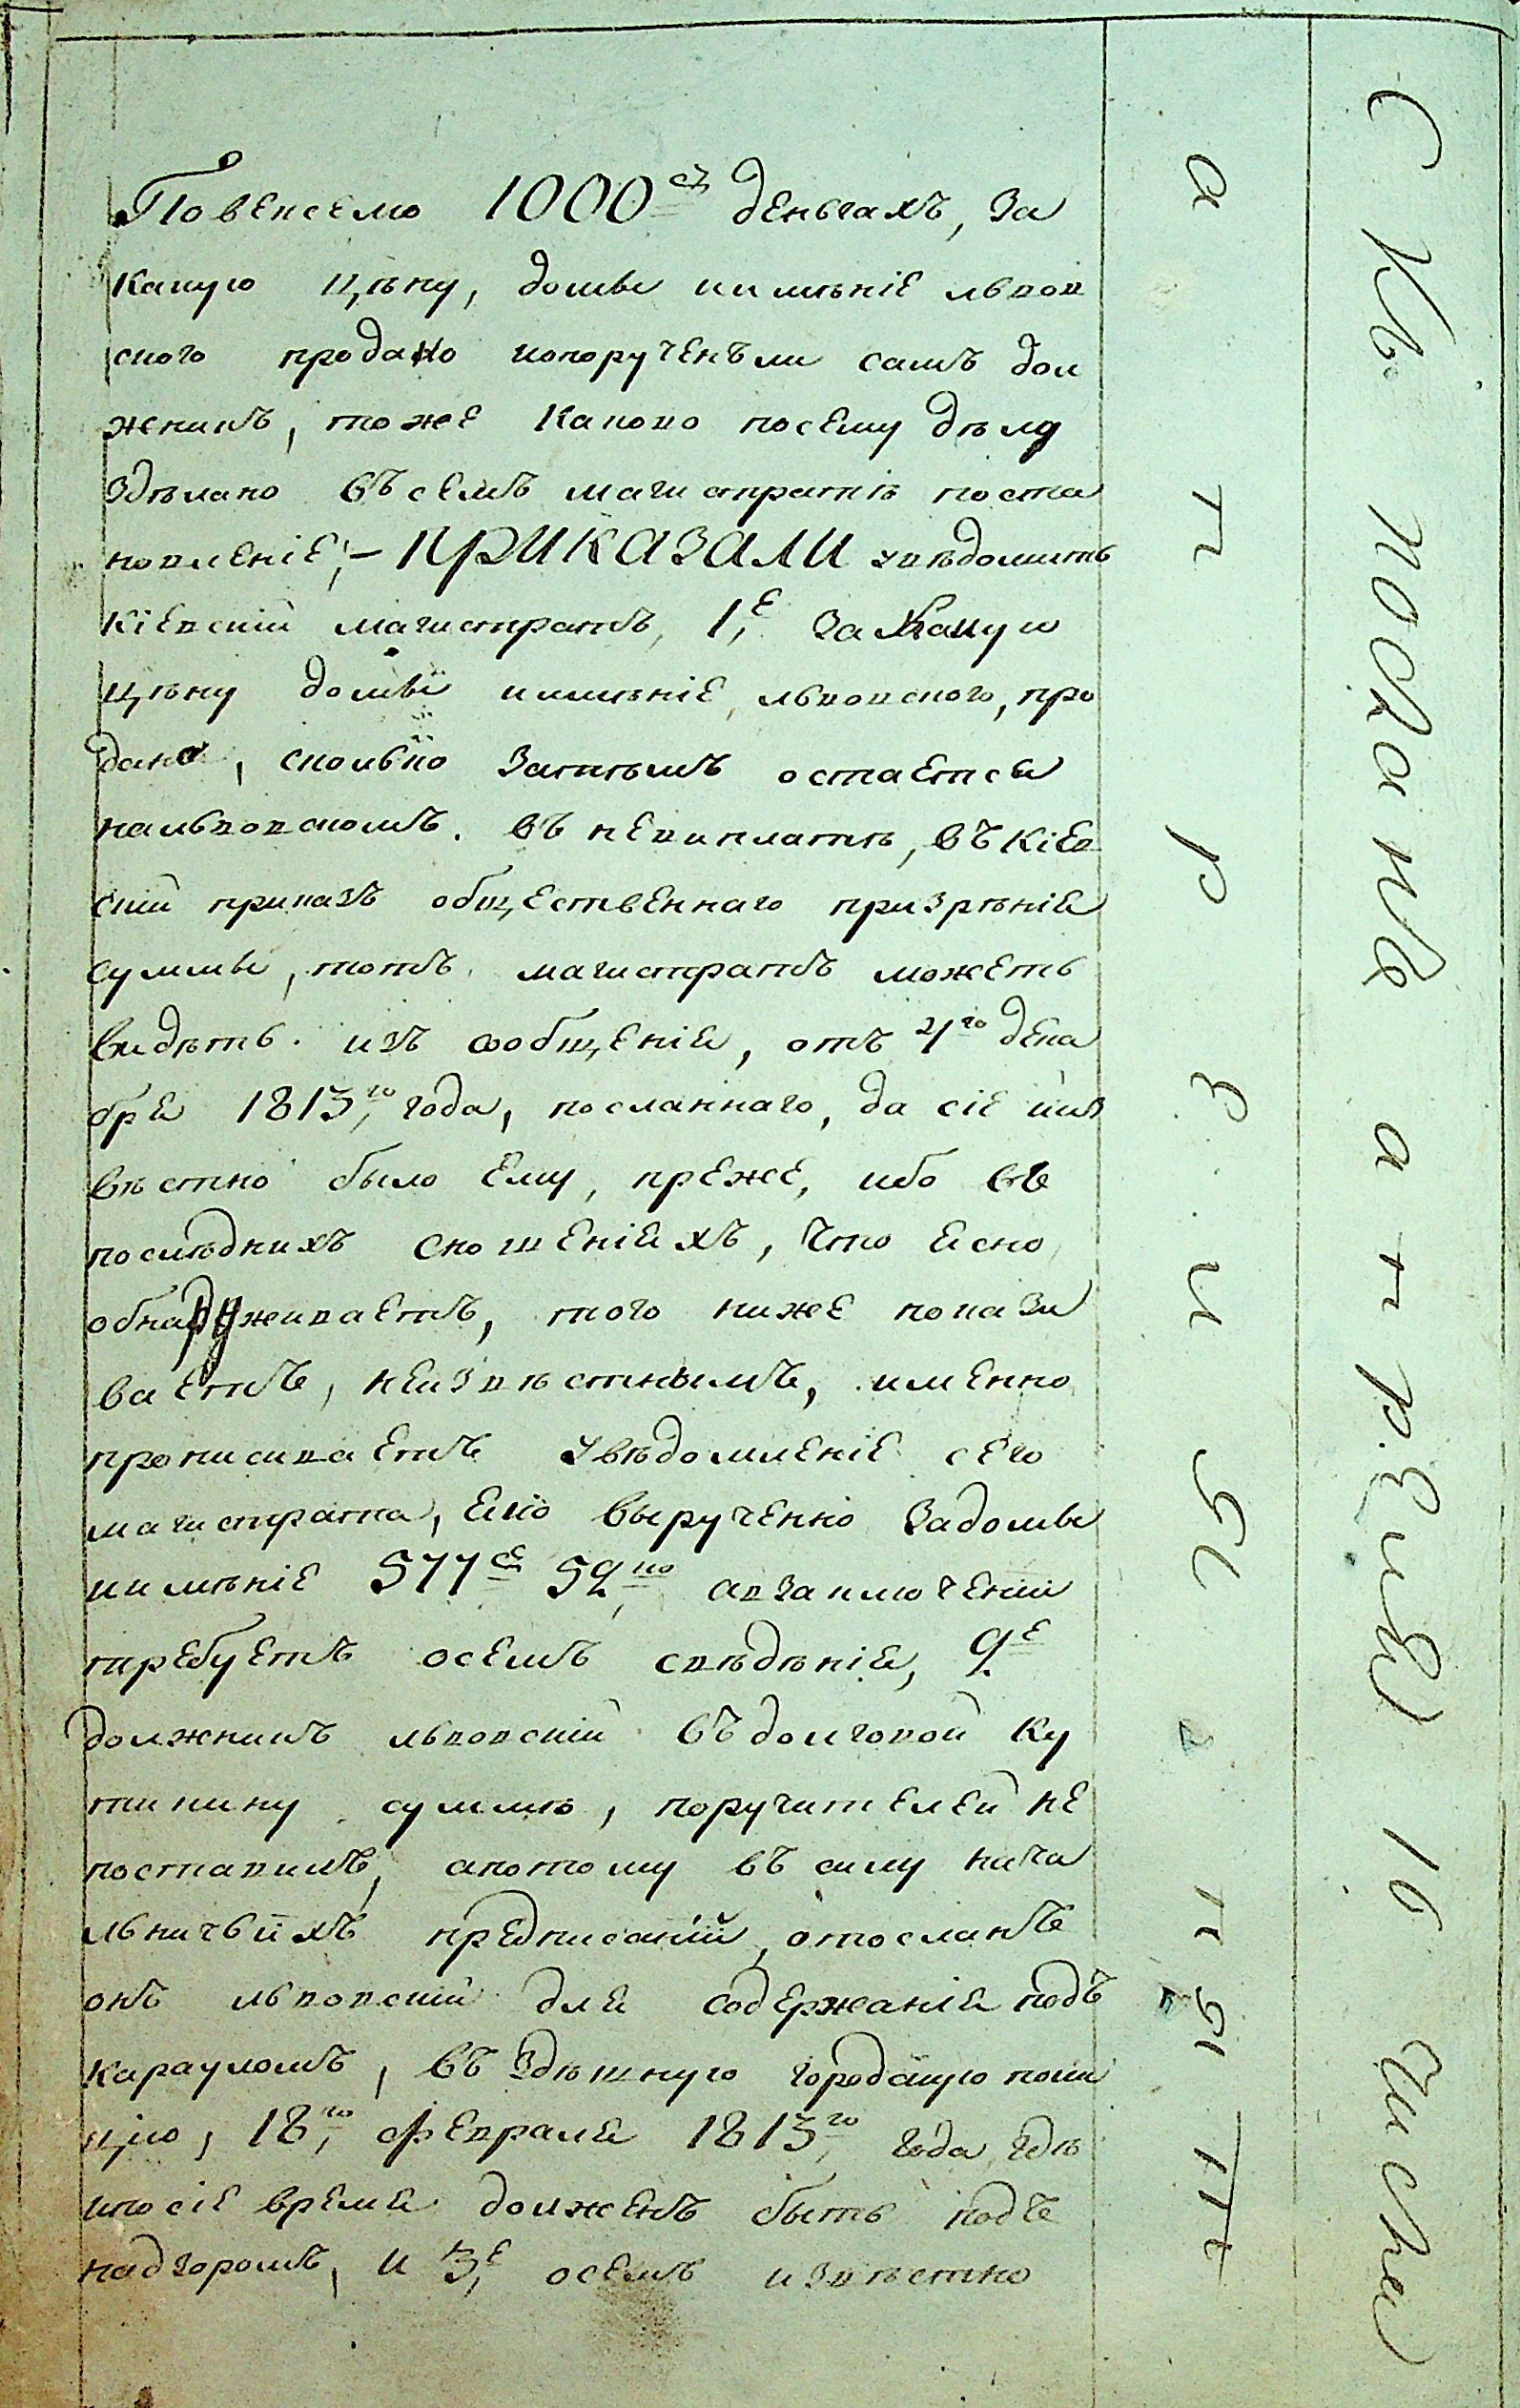 Повексемо 1000 съ деньгахъ, за
какую цѣну, домъ иимѣніе львов
ского продано ипорученъли самъ дол
жникъ, тоже каково посему дѣлу
здѣлано въ семъ магистратѣ поста
новленіе; – ПРИКАЗАЛИ увѣдомить
Кіевскій магистратъ, 1,е за какую
цѣну домъ иимѣніе, львовского, про
дано, сколько затѣмъ остается
нальвовскомъ. въ невиплатѣ, въ Кіев
скій приказъ общественнаго призрѣнія
суммы, тотъ магистратъ можетъ
видѣть. изъ сообщенія, отъ 4го дека
бря 1813,го года, посланнаго, да сіе ииз
вѣстно было ему, преже, ибо въ
послѣднихъ сношеніяхъ, что ясно
обнаруживаетъ, того ниже покази
ваетъ, неизвѣстнымъ, именно
прописиваетъ увѣдомленіе сего
магистрата, яко вырученно задомъ
иимѣніе 577 ср 52,ко авзаключеніи
требуетъ осемъ свѣдѣнія, 2е
должникъ львовскій въ долговой Ку
тинину суммѣ, поручителей не
поставилъ, апотому въ силу нача
льничьихъ предписаній, отосланъ
онъ львовскій для содержанія подъ
карауломъ, въ здѣшную городскую поли
цію, 18,го февраля 1813,го года, гдѣ
ипосіе время долженъ быть подъ
надзоромъ, и 3,е осемъ извѣстно